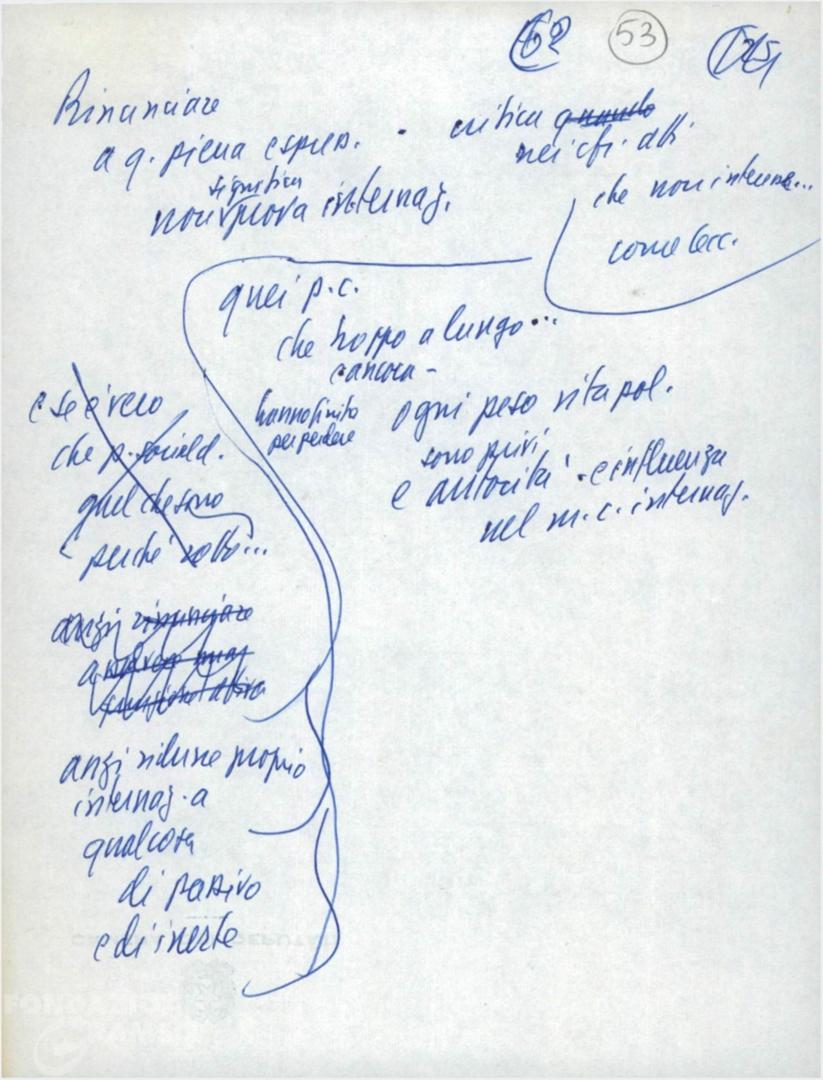 53
Rinunciare
a q. piena espres.
significa
non prova internaz.
critica quando
nei cfr. di
che non interne...
come lecc.
quei p.c.
che troppo a lungo...
ancora -
hanno finito
per perdere
ogni peso vita pol.
sono privi
e autorità e influenza
nel m.c. internaz.
e se è vero
che p. sociald.
quel che sono
perché
anzi rinunciare
anzi ridurre proprio
internaz. a
qualcosa
di passivo
e di inerte